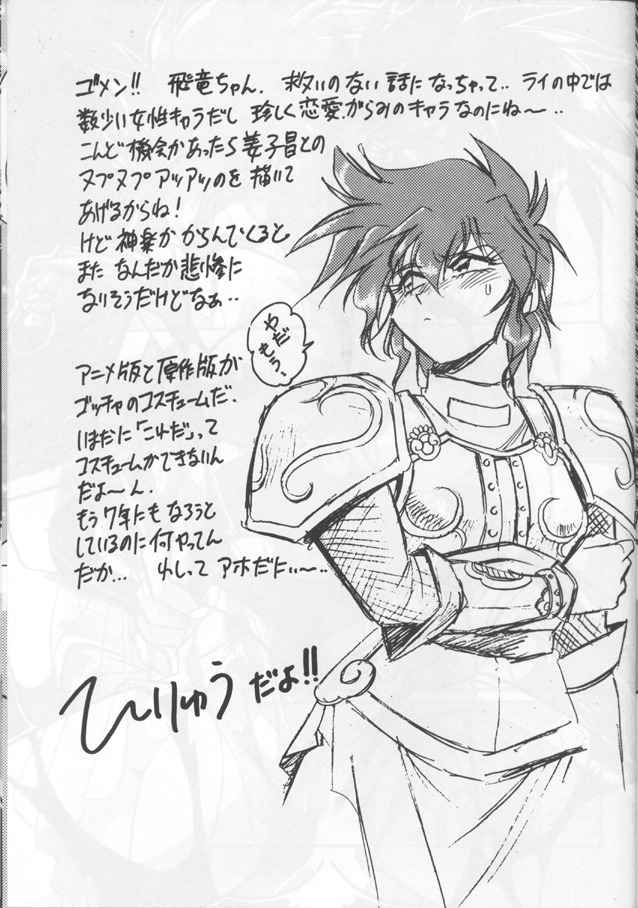 ゴメン!! 飛竜ちゃん. 救いのない話になっちゃって‥ ライの中では
数少い女性キャラだし 珍しく恋愛がらみのキャラなのにね〜‥
こんど機会があったら姜子昌との
ヌプヌプアツアツのを描いて
あげるからね!
けど神楽がからんでくると
また なんだか悲惨に
なりそうだけどなぁ‥
やだ
もう、
アニメ版と原作版が
ゴッチャのコスチュームだ.
いまだに「これだ」って
コスチュームができないん
だよ〜ん.
もう7年にもなろうと
しているのに何やってん
だか… れしって アホだにぃ〜‥
ひりゅうだよ!!